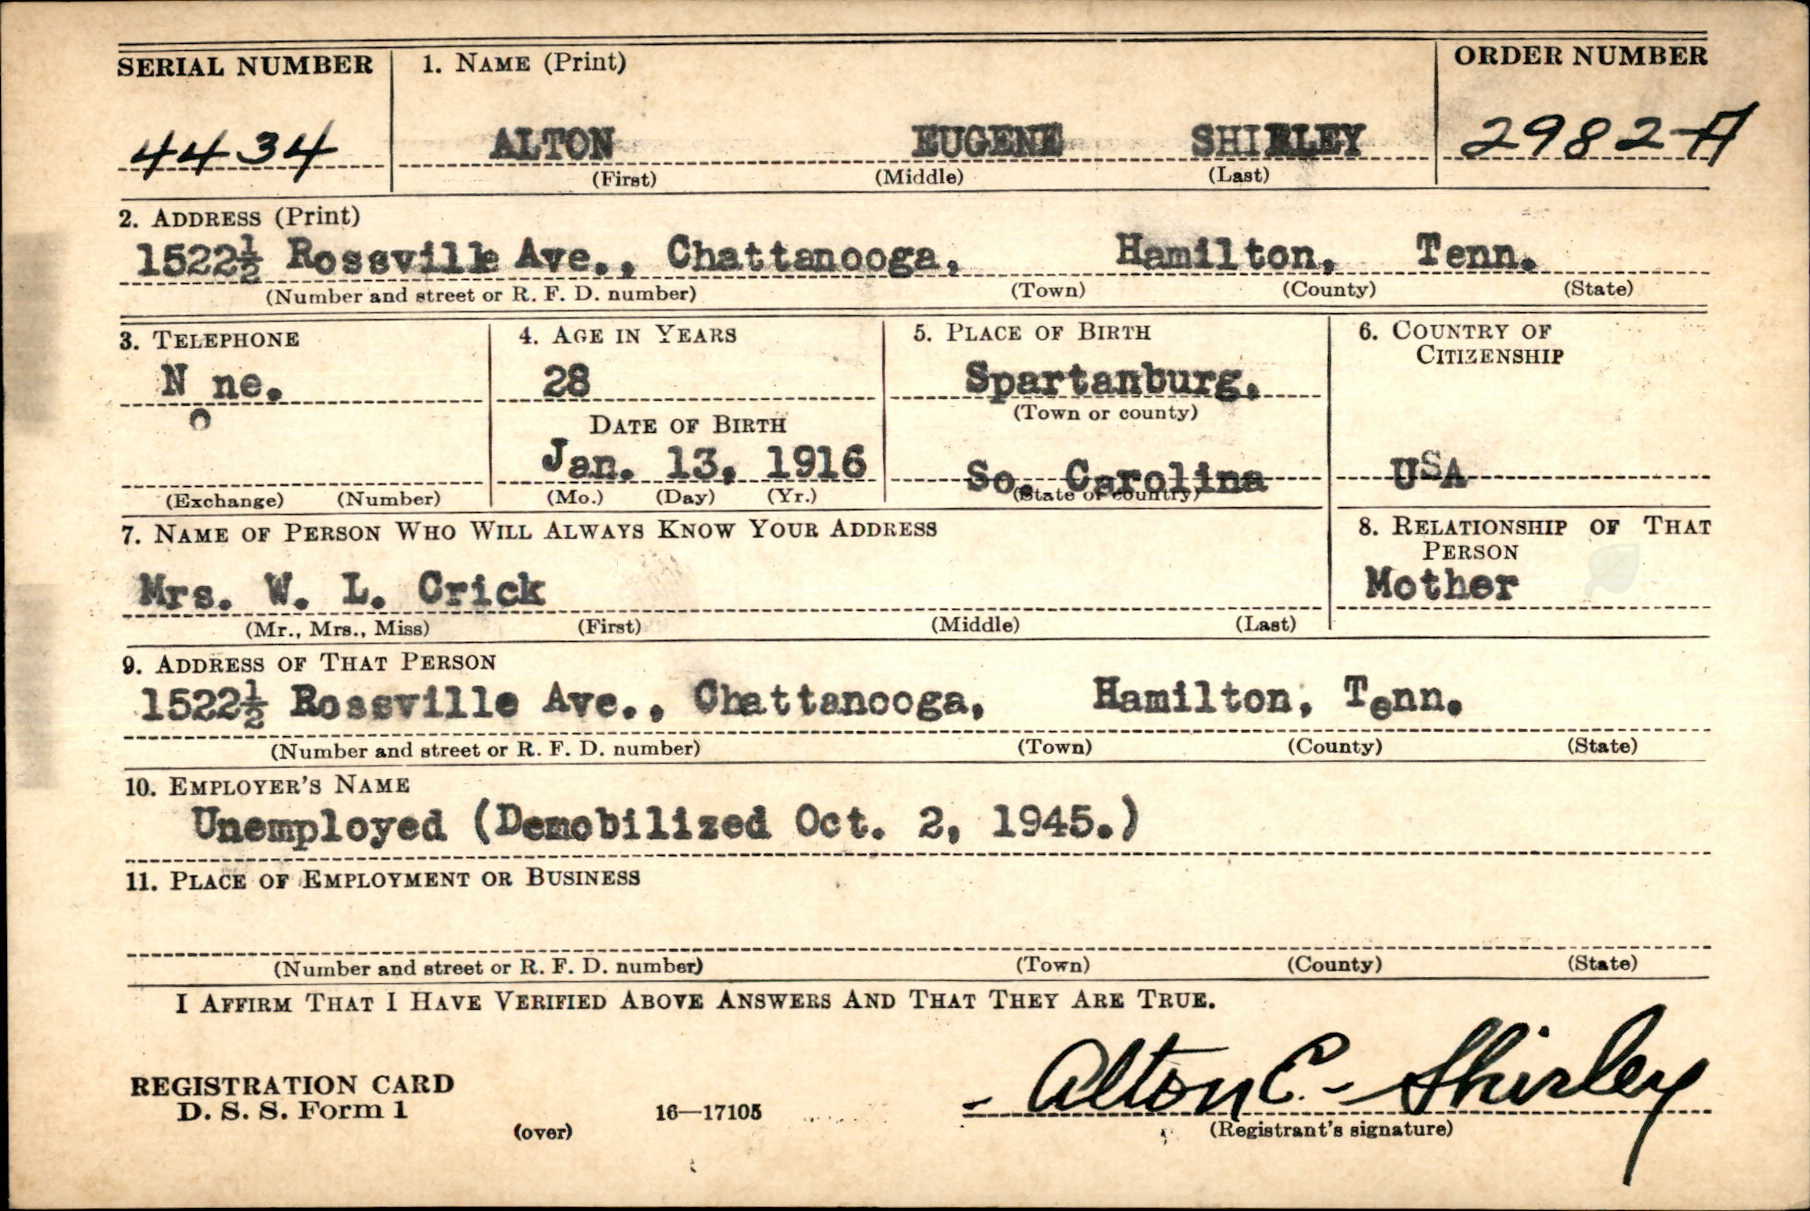 SERIAL NUMBER
1. NAME (Print)
ORDER NUMBER
4434
ALTON EUGENE SHIRLEY
2982-A
(First) (Middle) (Last)
2. ADDRESS (Print)
1522½ Rossville Ave., Chattanooga, Hamilton, Tenn.
(Number and street or R. F. D. number) (Town) (County) (State)
3. TELEPHONE
4. AGE IN YEARS
5. PLACE OF BIRTH
6. COUNTRY OF CITIZENSHIP
None.
28
Spartanburg,
(Town or county)
DATE OF BIRTH
Jan. 13, 1916
So. Carolina
USA
(Exchange) (Number)
(Mo.) (Day) (Yr.)
(State or country)
7. NAME OF PERSON WHO WILL ALWAYS KNOW YOUR ADDRESS
8. RELATIONSHIP OF THAT PERSON
Mrs. W. L. Crick
Mother
(Mr., Mrs., Miss) (First) (Middle) (Last)
9. ADDRESS OF THAT PERSON
1522½ Rossville Ave., Chattanooga, Hamilton, Tenn.
(Number and street or R. F. D. number) (Town) (County) (State)
10. EMPLOYER'S NAME
Unemployed (Demobilized Oct. 2, 1945.)
11. PLACE OF EMPLOYMENT OR BUSINESS
(Number and street or R. F. D. number) (Town) (County) (State)
I AFFIRM THAT I HAVE VERIFIED ABOVE ANSWERS AND THAT THEY ARE TRUE.
Alton E. Shirley
REGISTRATION CARD
D. S. S. Form 1
16—17105
(over)
(Registrant's signature)